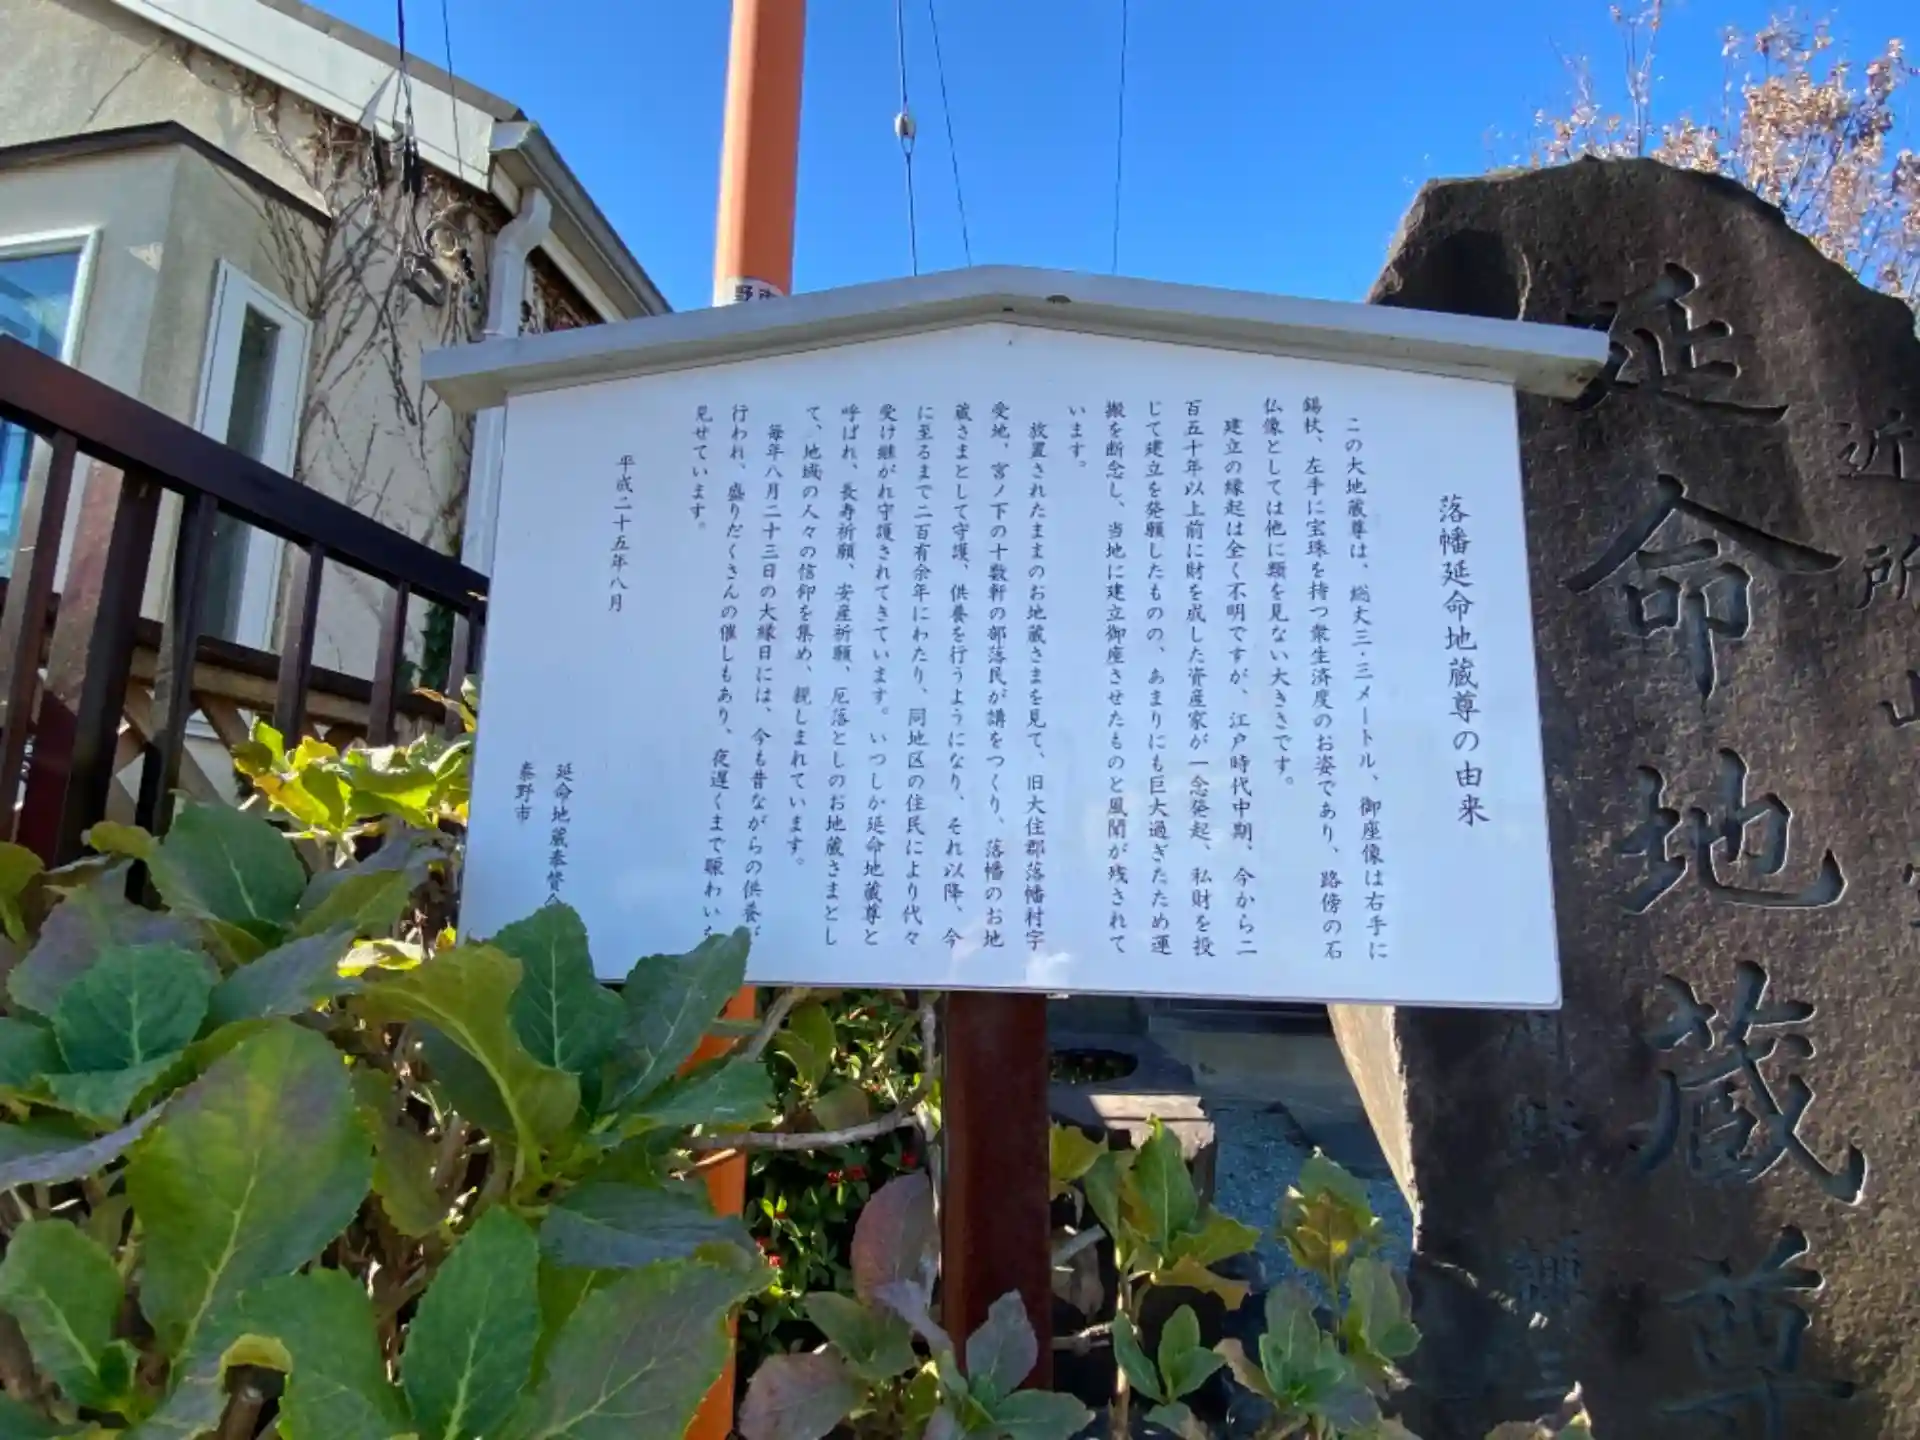 落幡延命地蔵尊の由来
この大地蔵尊は、総丈三・三メートル、御座像は右手に
錫杖、左手に宝珠を持つ衆生済度のお姿であり、路傍の石
仏像としては他に類を見ない大きさです。
建立の縁起は全く不明ですが、江戸時代中期、今から二
百五十年以上前に財を成した資産家が一念発起、私財を投
じて建立を発願したものの、あまりにも巨大過ぎたため運
搬を断念し、当地に建立御座させたものと風聞が残されて
います。
放置されたままのお地蔵さまを見て、旧大住郡落幡村字
受地、宮ノ下の十数軒の部落民が講をつくり、落幡のお地
蔵さまとして守護、供養を行うようになり、それ以降、今
に至るまで二百有余年にわたり、同地区の住民により代々
受け継がれ守護されてきています。いつしか延命地蔵尊と
呼ばれ、長寿祈願、安産祈願、厄落としのお地蔵さまとし
て、地域の人々の信仰を集め、親しまれています。
毎年八月二十三日の大縁日には、今も昔ながらの供養が
行われ、盛りだくさんの催しもあり、夜遅くまで賑わいを
見せています。
平成二十五年八月
延命地蔵奉賛会
秦野市
延命地蔵尊
近所
野市